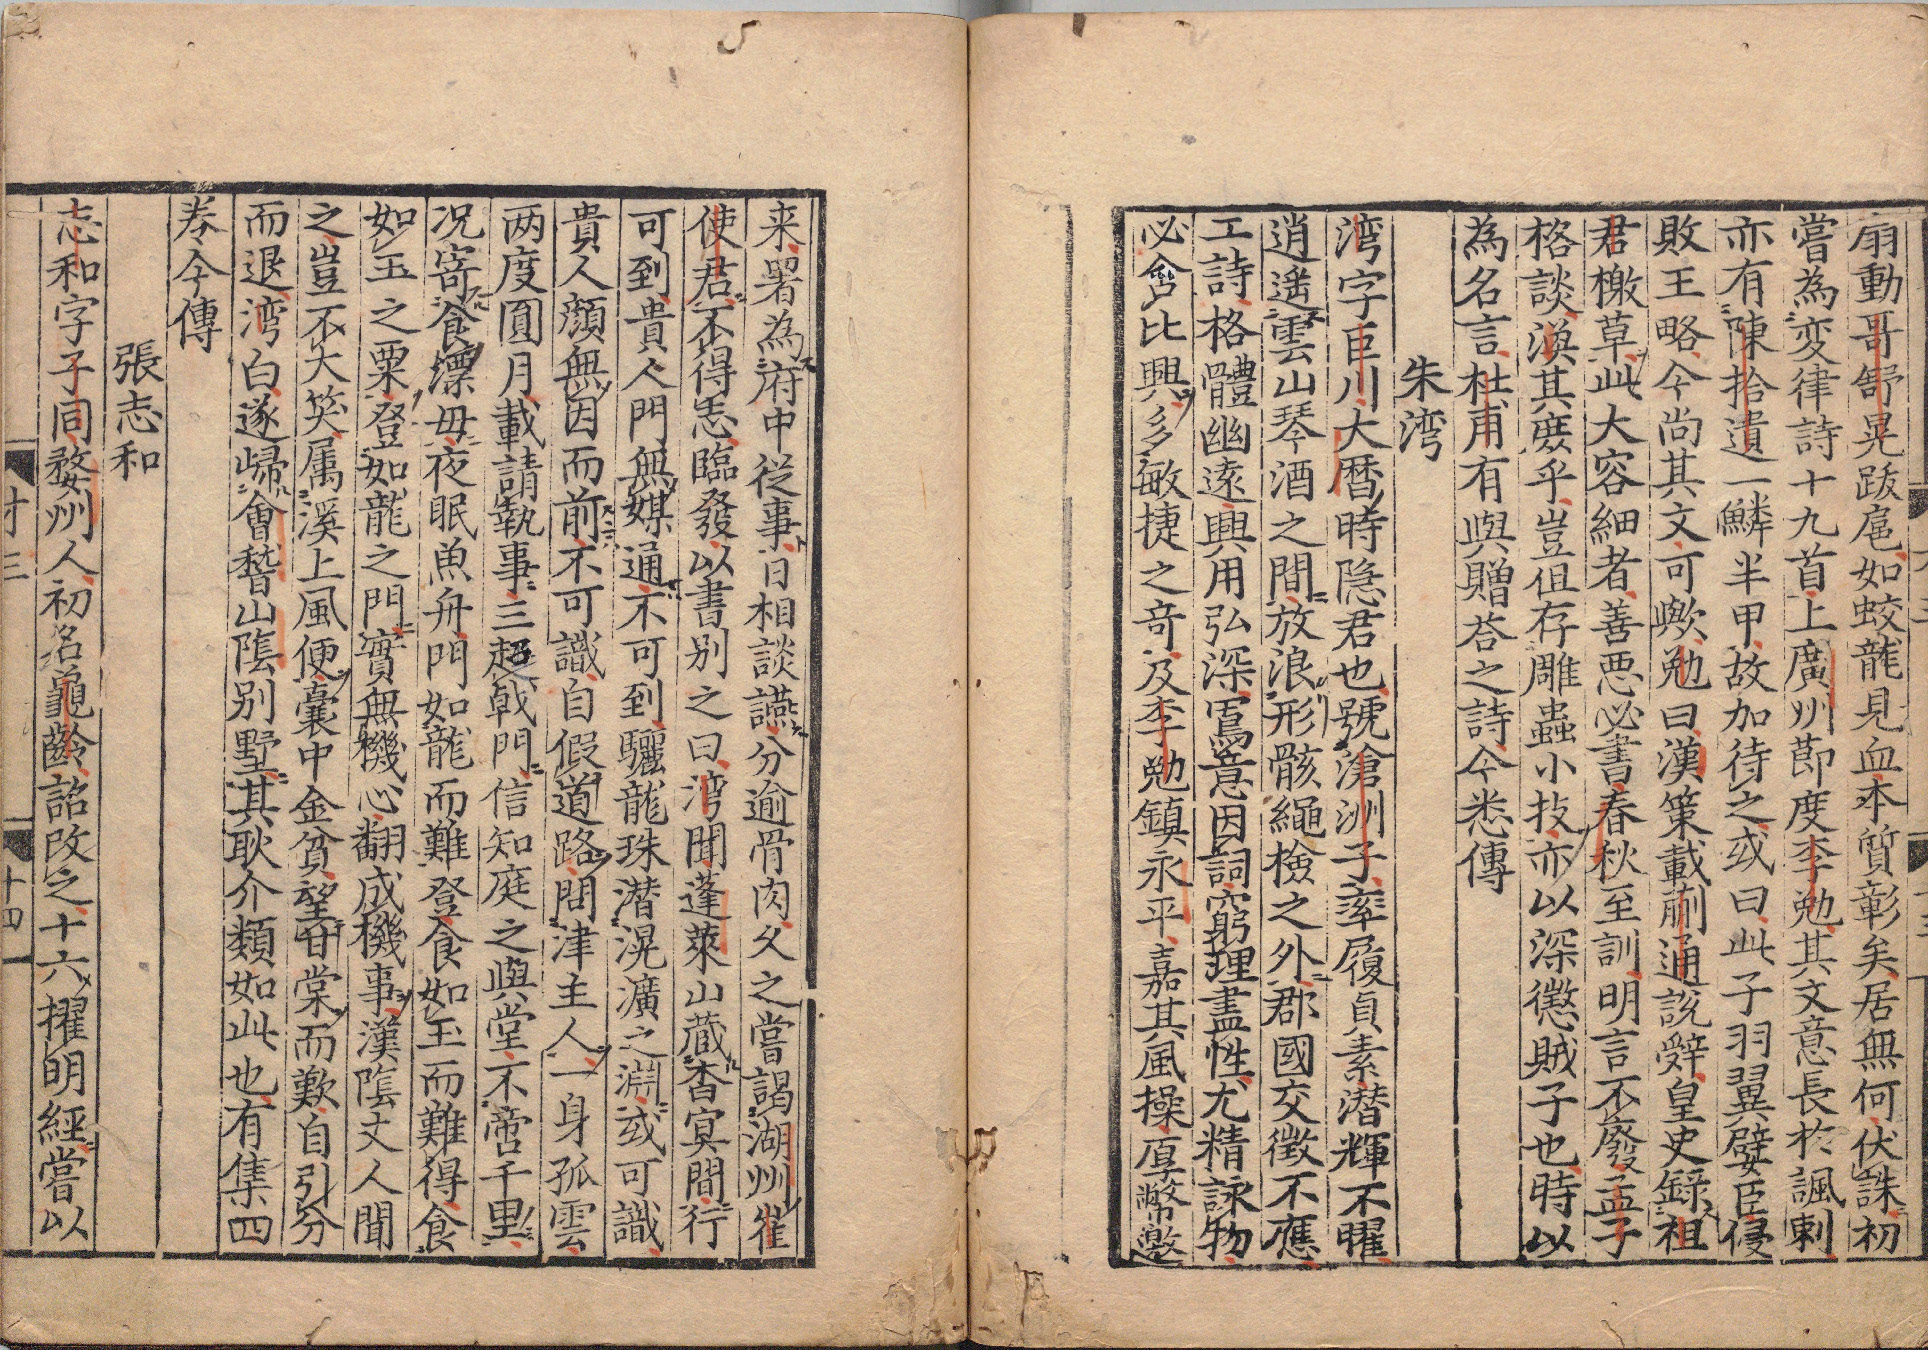 扇動哥舒晃跋扈如蛟龍見血本質彰矣居無何伏誅初
嘗為変律詩十九首上廣州節度李勉其文意長於諷刺
亦有陳拾遺一鱗半甲故加待之或曰此子羽翼嬖臣侵
敗王略今尚其文可歟勉曰漢策載蒯通説辭皇史錄祖
君檄草此大容細者善悪必書春秋至訓明言不廢孟子
格談渙其庻乎豈但存雕蟲小技亦以深懲賊子也時以
為名言杜甫有與贈荅之詩今悉傳
朱湾
湾字巨川大暦時隐君也號滄洲子率履貞素潜輝不曜
逍遥雲山琴酒之間放浪形骸繩檢之外郡國交徴不應
工詩格體幽遠興用弘深寫意因詞窮理盡性尤精詠物
必含比興多敏捷之竒及李勉鎮永平嘉其風操厚幣邀
来署為府中従事日相談讌分逾骨肉久之嘗謁湖州崔
使君不得志臨發以書别之曰湾聞蓬萊山蔵杳㝠間行
可到貴人門無媒通不可到驪龍珠潜滉瀇之淵或可識
貴人顔無因而前不可識自假道路問津主人一身孤雲
两度圓月載請執事三趨戟門信知庭之與堂不啻千里
况寄食漂母夜眠魚舟門如龍而難登食如玉而難得食
如玉之粟登如龍之門實無機心翻成機事漢隂丈人聞
之豈不大笑属溪上風便囊中金貧望甘棠而歎自引分
而退湾白遂帰會稽山隂别墅其耿介類如此也有集四
卷今傳
張志和
志和字子同婺州人初名龜齡詔改之十六擢明經嘗以
十四